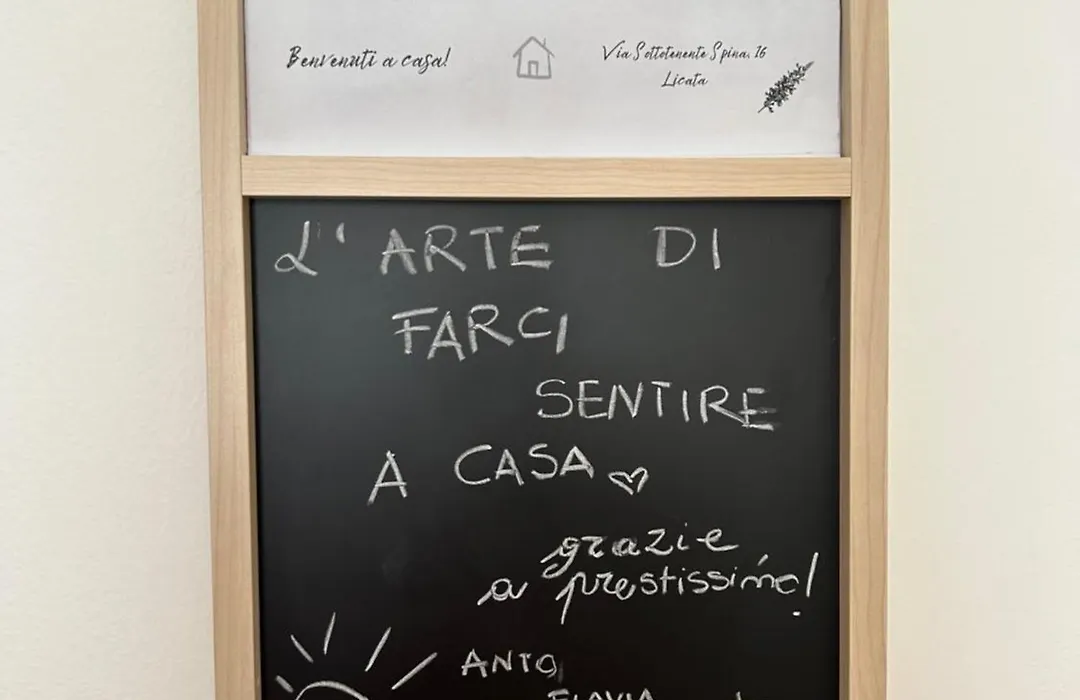 Benvenuti a casa!
Via Sottotenente Spina, 16
Licata
L' ARTE DI
FARCI
SENTIRE
A CASA
grazie
a prestissimo!
ANTO,
FLAVIA